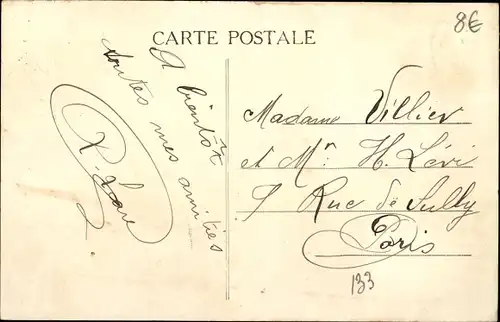 8€
CARTE POSTALE
A bientôt
toutes mes amitiés
Madame Villier
et Mr. H. Lévi
9 Rue de Sully
Paris
133